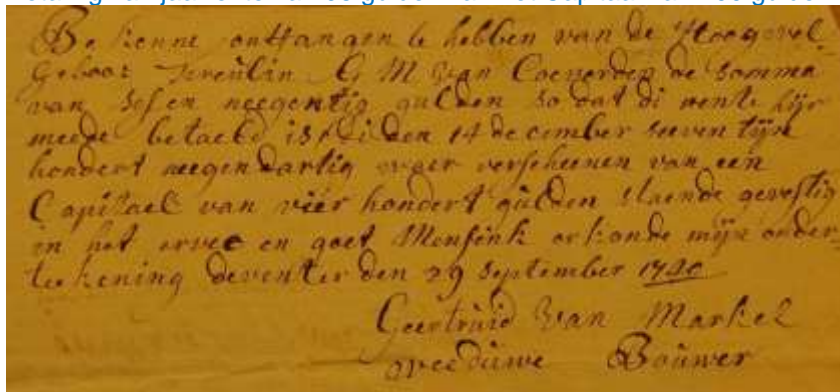 Bekenne ontfangen te hebben van de Hoogwel
geboor Freulin G M van Coeverden de somma
van sessen neegentig gulden so dat di rente hijr
meede betaeld is di den 14 december seeven tijn
hondert neegen dartig waer verscheenen van een
Capitael van vier hondert gulden staende gevestig
in het ervee en goet Mensink orkonde mijn onder
teekening deventer den 29 september 1740
Geertruid van Markel
weeduwe Bouwer